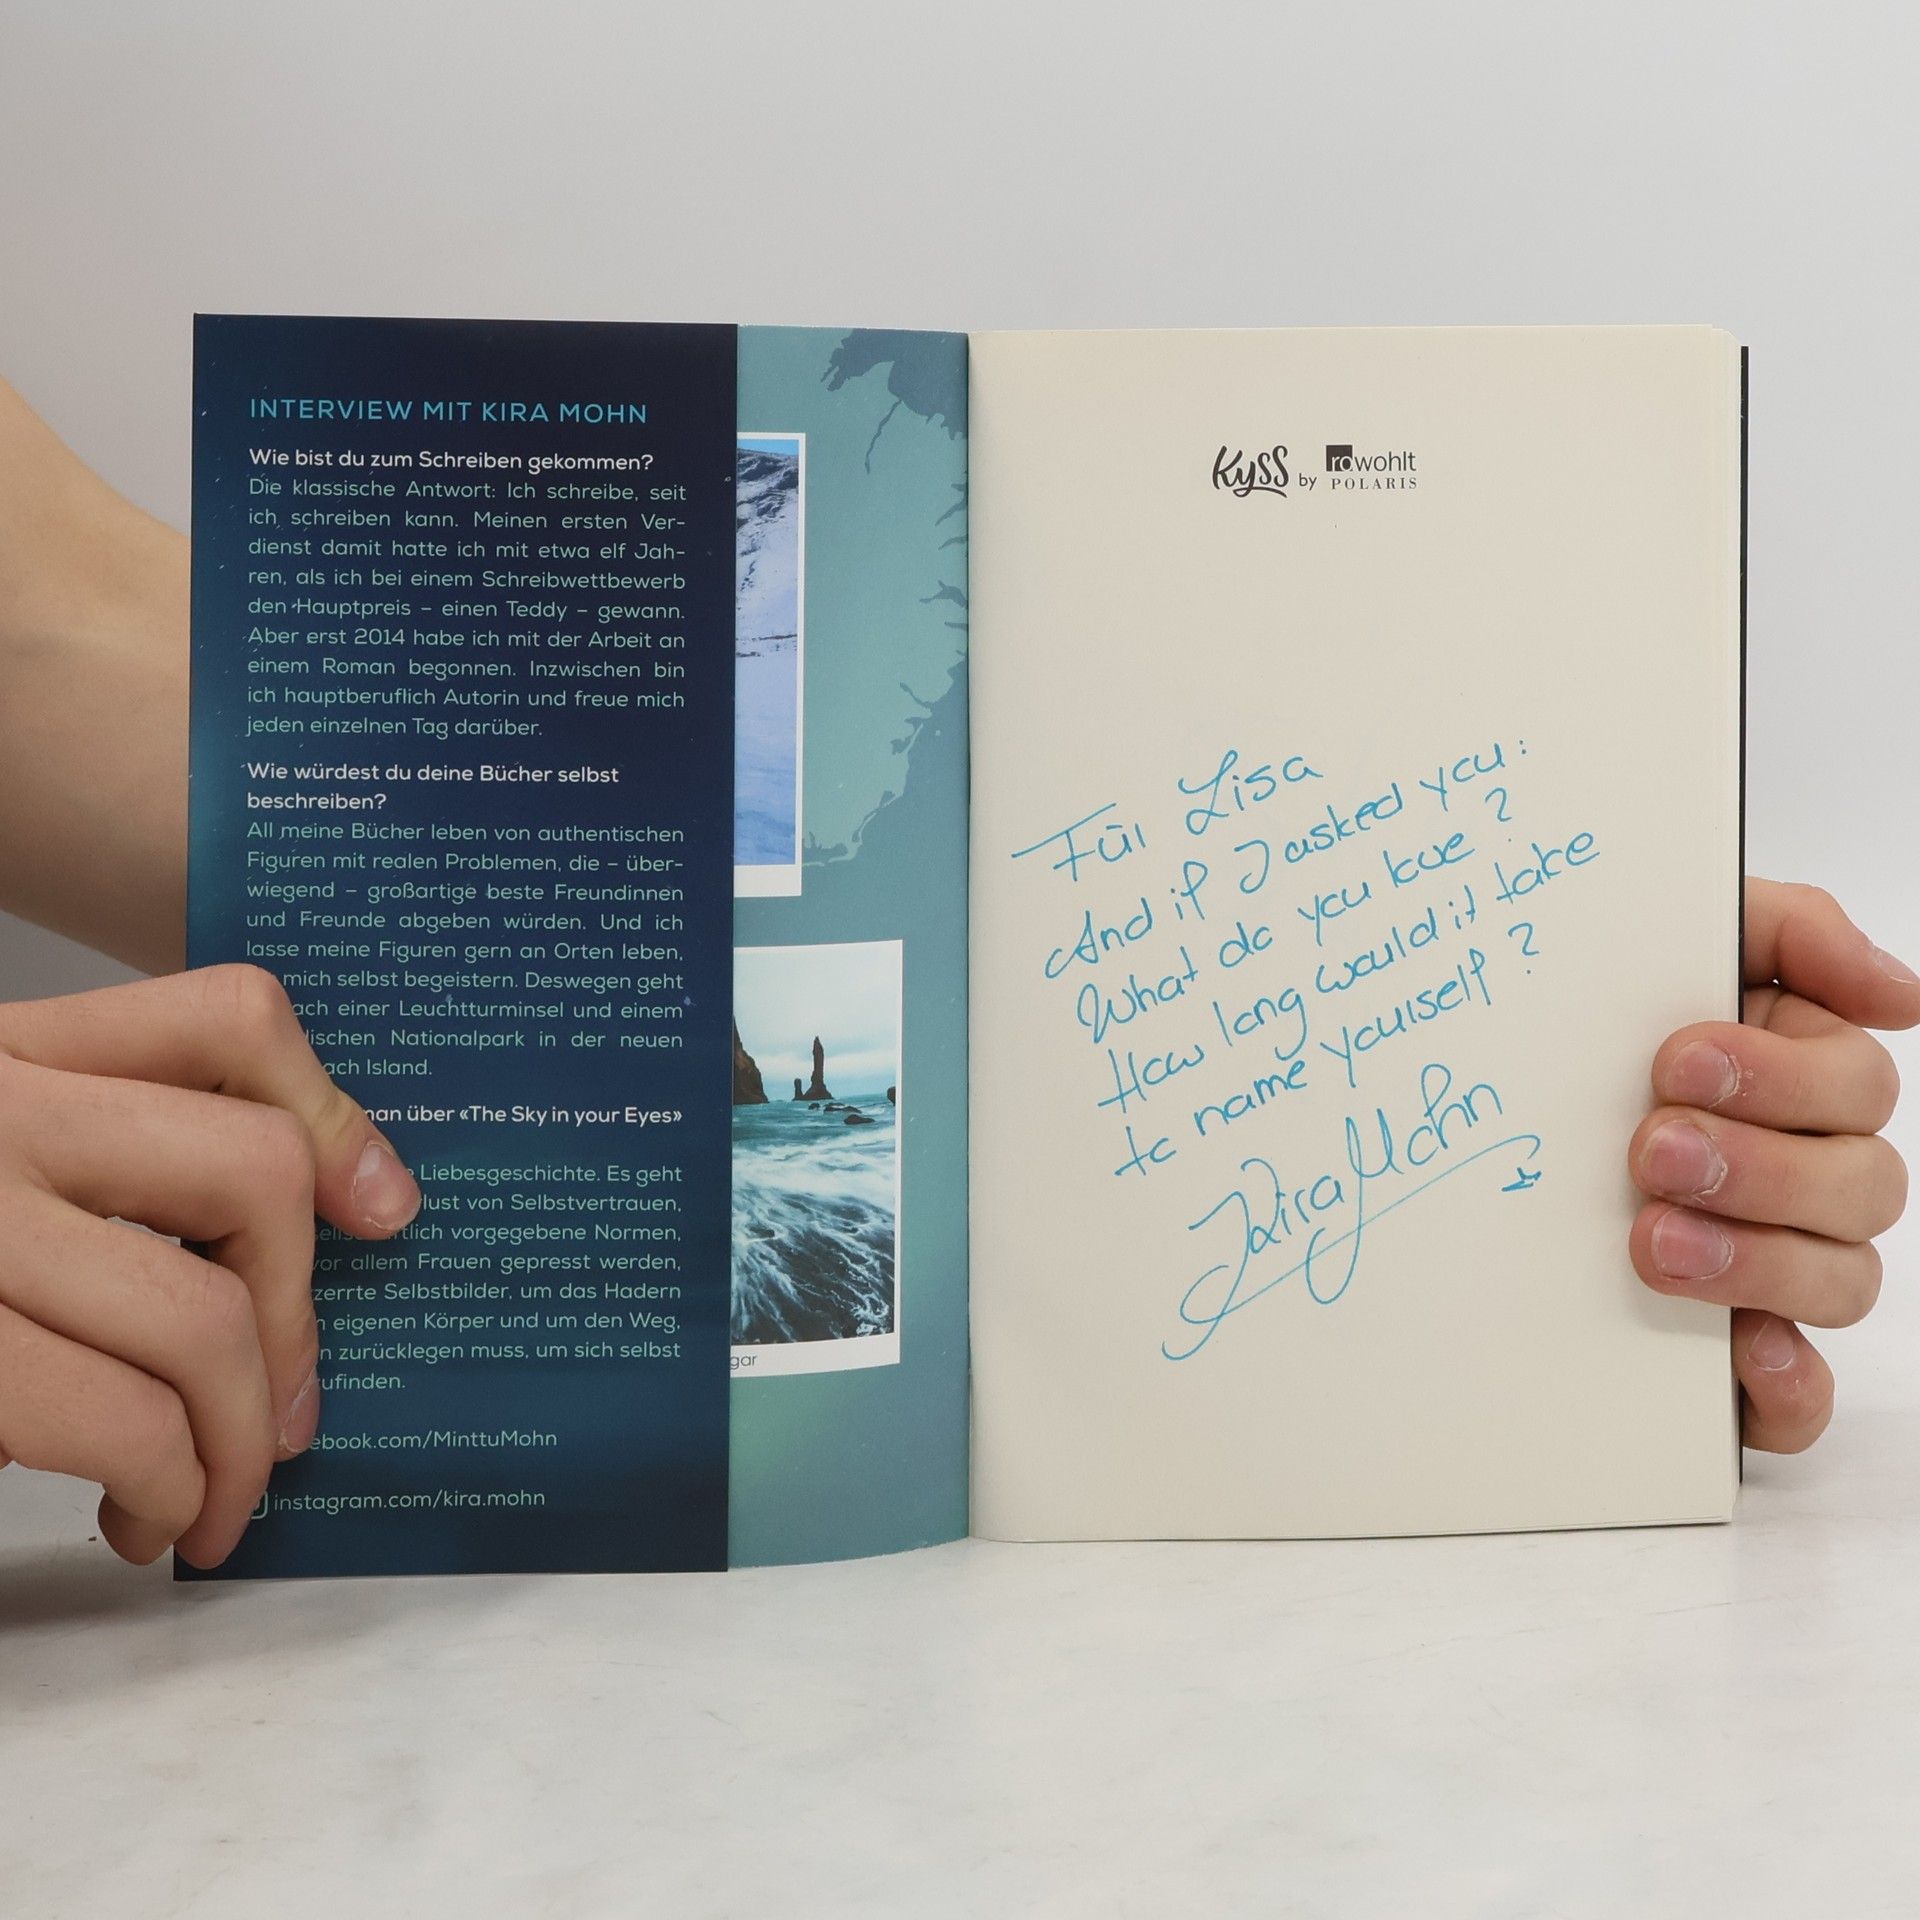 INTERVIEW MIT KIRA MOHN
Wie bist du zum Schreiben gekommen?
Die klassische Antwort: Ich schreibe, seit
ich schreiben kann. Meinen ersten Ver-
dienst damit hatte ich mit etwa elf Jah-
ren, als ich bei einem Schreibwettbewerb
den Hauptpreis – einen Teddy – gewann.
Aber erst 2014 habe ich mit der Arbeit an
einem Roman begonnen. Inzwischen bin
ich hauptberuflich Autorin und freue mich
jeden einzelnen Tag darüber.
Wie würdest du deine Bücher selbst
beschreiben?
All meine Bücher leben von authentischen
Figuren mit realen Problemen, die – über-
wiegend – großartige beste Freundinnen
und Freunde abgeben würden. Und ich
lasse meine Figuren gern an Orten leben,
mich selbst begeistern. Deswegen geht
ach einer Leuchtturminsel und einem
ischen Nationalpark in der neuen
ach Island.
an über «The Sky in your Eyes»
Liebesgeschichte. Es geht
lust von Selbstvertrauen,
tlich vorgegebene Normen,
vor allem Frauen gepresst werden,
zerrte Selbstbilder, um das Hadern
eigenen Körper und um den Weg,
n zurücklegen muss, um sich selbst
ufinden.
ebook.com/MinttuMohn
instagram.com/kira.mohn
gar
Kyss by rowohlt
POLARIS
Für Lisa
And if I asked you:
What do you love?
How long would it take
to name yourself?
Kira Mohn